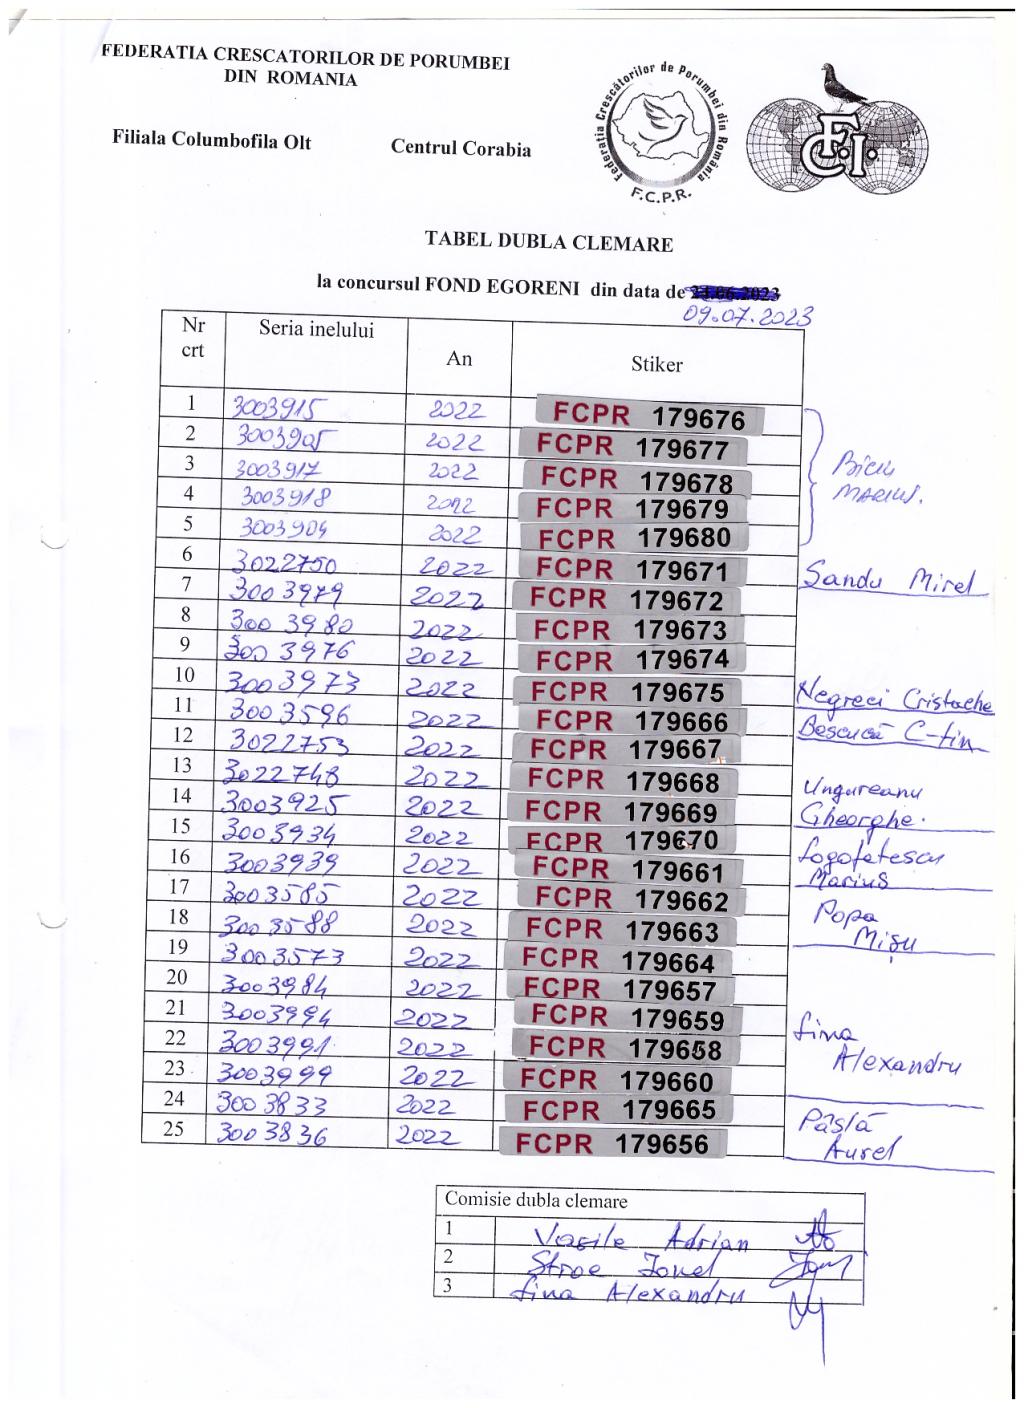 FEDERATIA CRESCATORILOR DE PORUMBEI
DIN ROMANIA
Federația Crescătorilor de Porumbei din România
F.C.P.R.
F.C.I.
Filiala Columbofila Olt Centrul Corabia
TABEL DUBLA CLEMARE
la concursul FOND EGORENI din data de 23.06.2023
09.07.2023
Nr crt Seria inelului An Stiker
1 3003915 2022 FCPR 179676
2 3003905 2022 FCPR 179677
3 3003917 2022 FCPR 179678
4 3003918 2022 FCPR 179679
5 3003904 2022 FCPR 179680
Biciu
MARIUS.
6 3022750 2022 FCPR 179671 Sandu Mirel
7 3003979 2022 FCPR 179672
8 3003980 2022 FCPR 179673
9 3003976 2022 FCPR 179674
10 3003973 2022 FCPR 179675 Negreci Cristache
11 3003596 2022 FCPR 179666 Bescucă C-tin
12 3022753 2022 FCPR 179667
13 3022748 2022 FCPR 179668 Ungureanu
14 3003925 2022 FCPR 179669 Gheorghe.
15 3003934 2022 FCPR 179670 Logofatescu
16 3003939 2022 FCPR 179661 Marius
17 3003585 2022 FCPR 179662 Popa
18 3003588 2022 FCPR 179663 Mișu
19 3003573 2022 FCPR 179664
20 3003984 2022 FCPR 179657
21 3003994 2022 FCPR 179659 Lina
22 3003991 2022 FCPR 179658 Alexandru
23 3003999 2022 FCPR 179660
24 3003833 2022 FCPR 179665 Pâslă
25 3003836 2022 FCPR 179656 Aurel
Comisie dubla clemare
1 Vasile Adrian
2 Stroe Ionel
3 Lina Alexandru